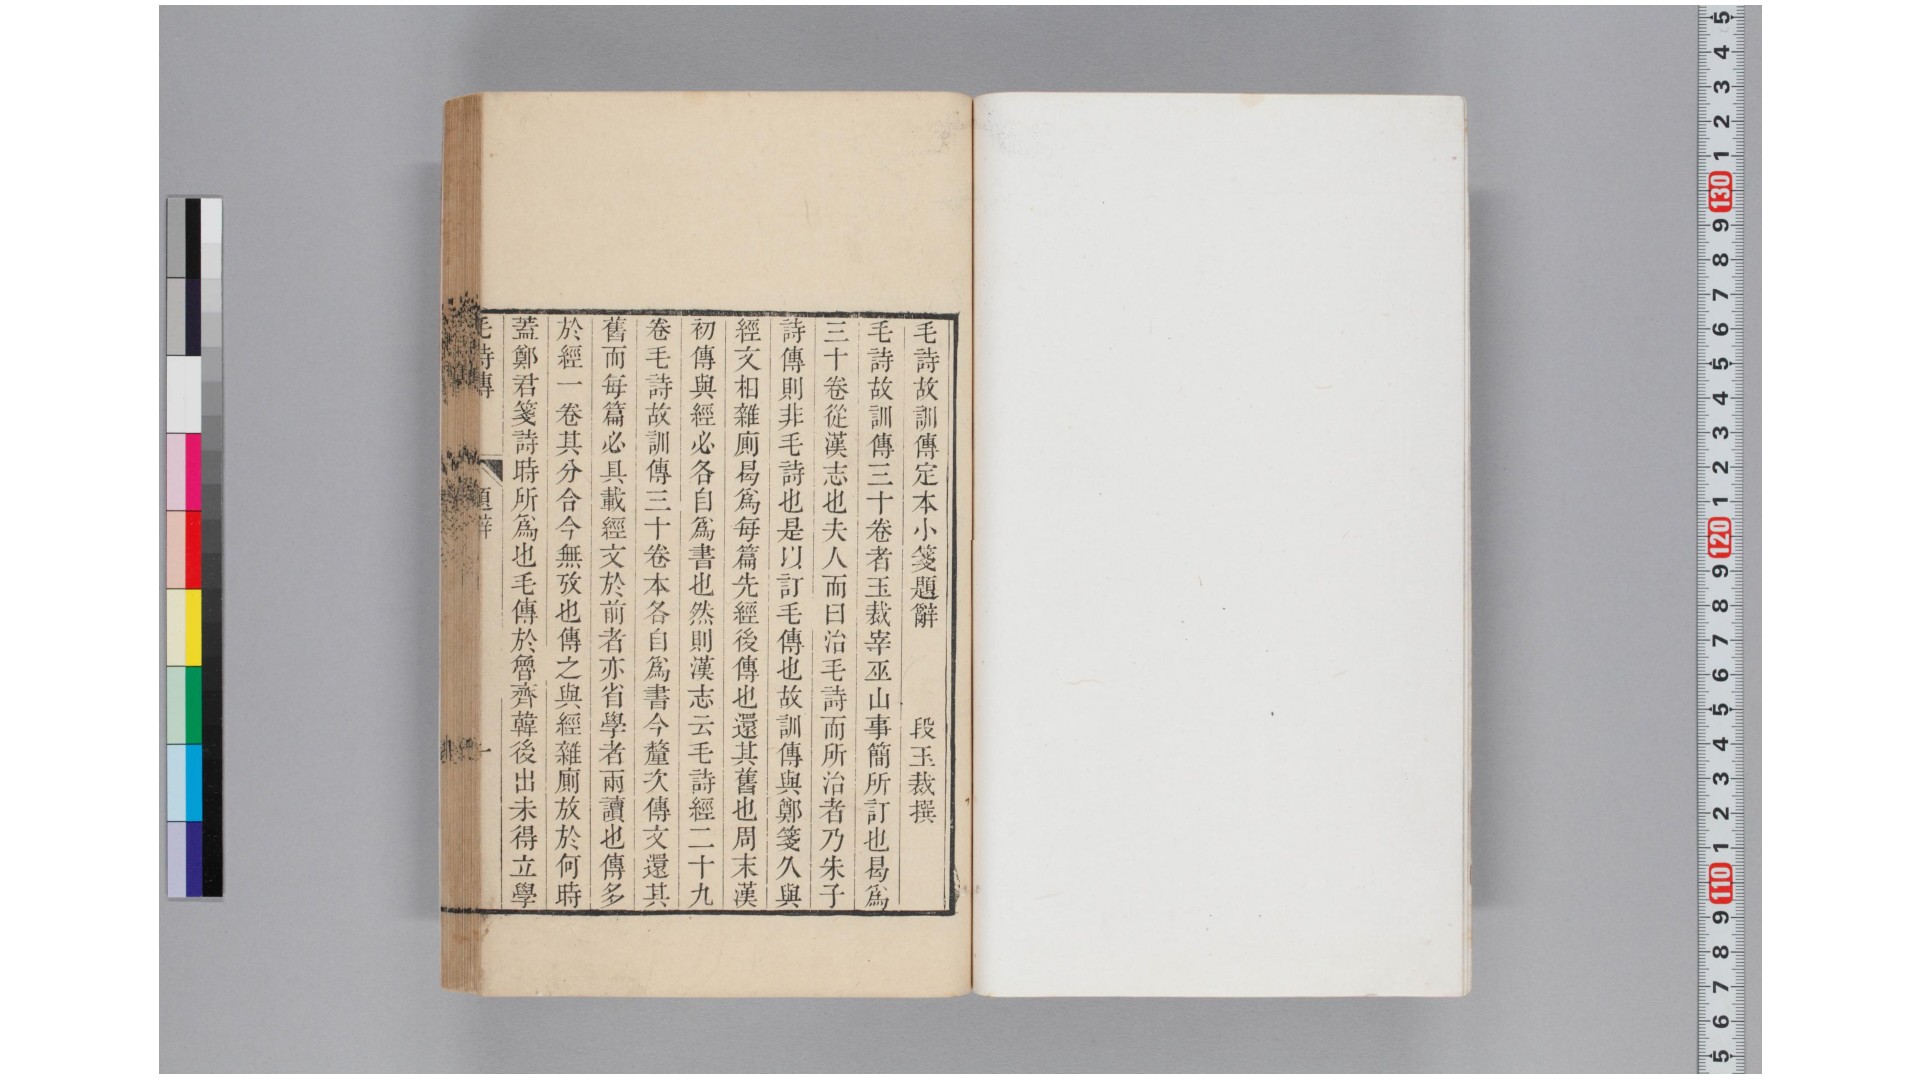 毛詩故訓傳定本小箋題辭 段玉裁撰
毛詩故訓傳三十卷者玉裁宰巫山事簡所訂也曷爲
三十卷從漢志也夫人而曰治毛詩而所治者乃朱子
詩傳則非毛詩也是以訂毛傳也故訓傳與鄭箋久與
經文相雜廁曷爲每篇先經後傳也還其舊也周末漢
初傳與經必各自爲書也然則漢志云毛詩經二十九
卷毛詩故訓傳三十卷本各自爲書今釐次傳文還其
舊而每篇必具載經文於前者亦省學者兩讀也傳多
於經一卷其分合今無攷也傳之與經雜廁放於何時
蓋鄭君箋詩時所爲也毛傳於魯齊韓後出未得立學
毛詩傳 題辭 一
5 4 3 2 1 130 9 8 7 6 5 4 3 2 1 120 9 8 7 6 5 4 3 2 1 110 9 8 7 6 5